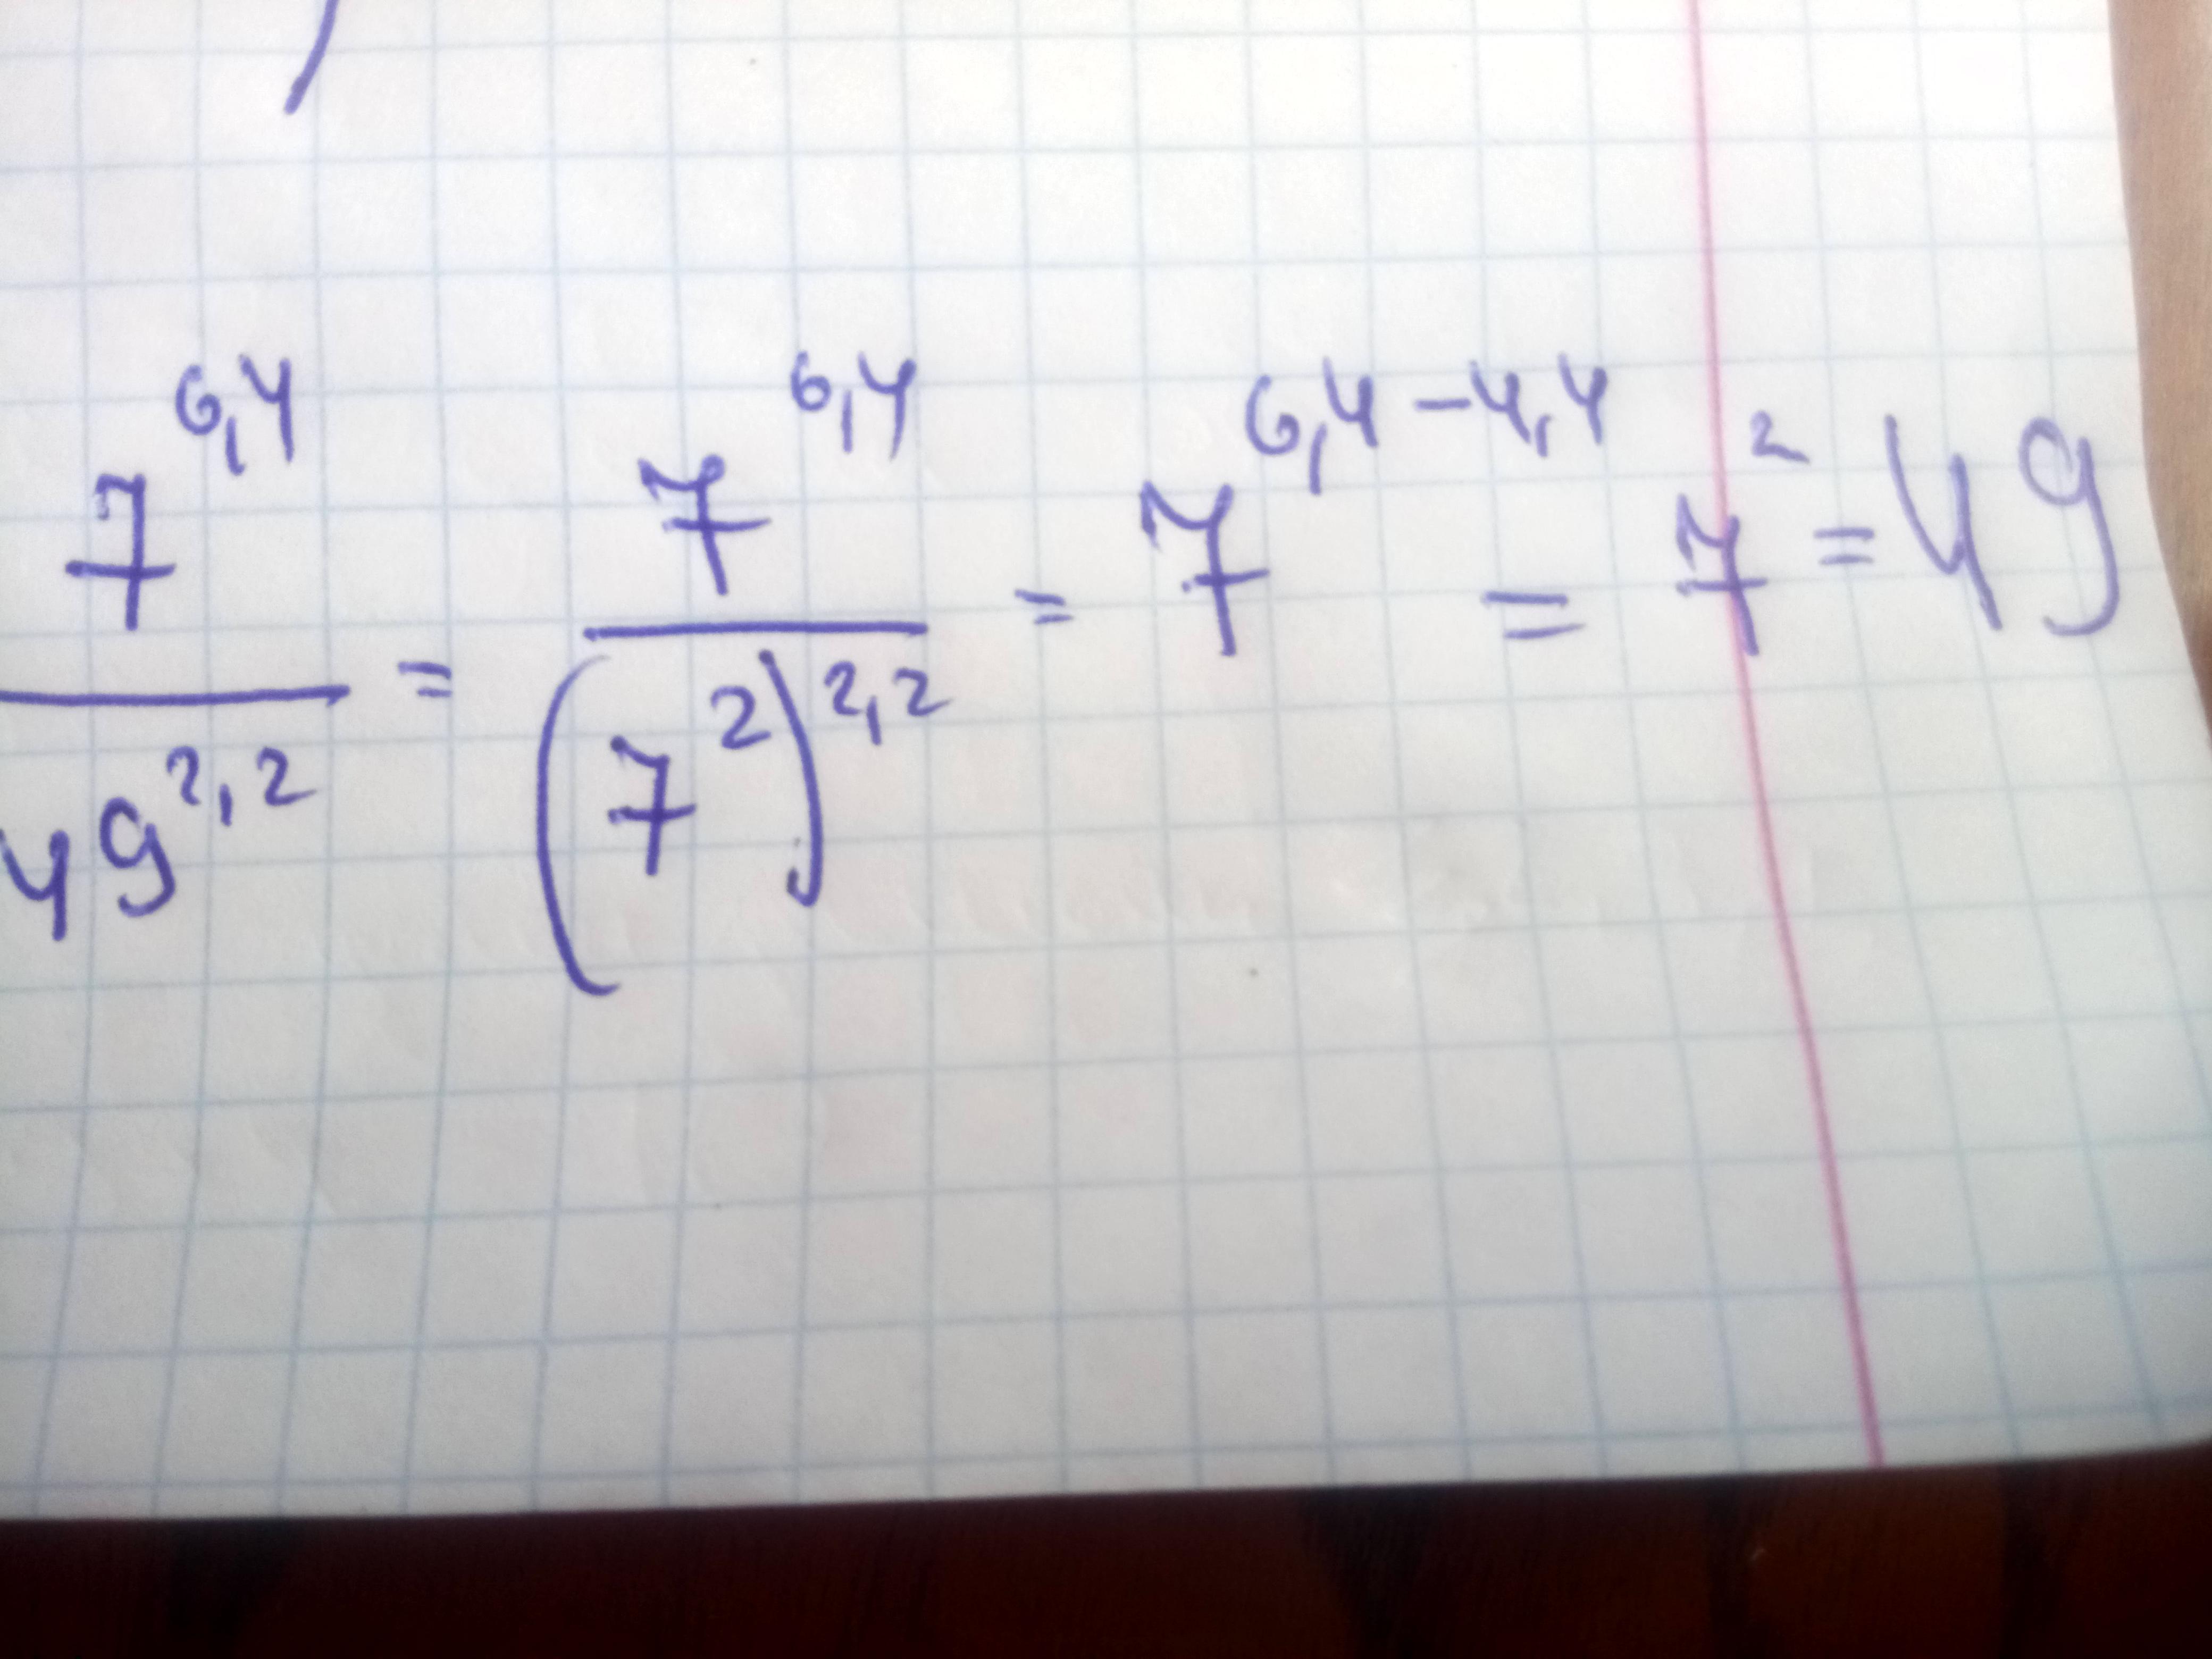 7^{6,4} / 49^{2,2} = 7^{6,4} / (7^2)^{2,2} = 7^{6,4-4,4} = 7^2 = 49